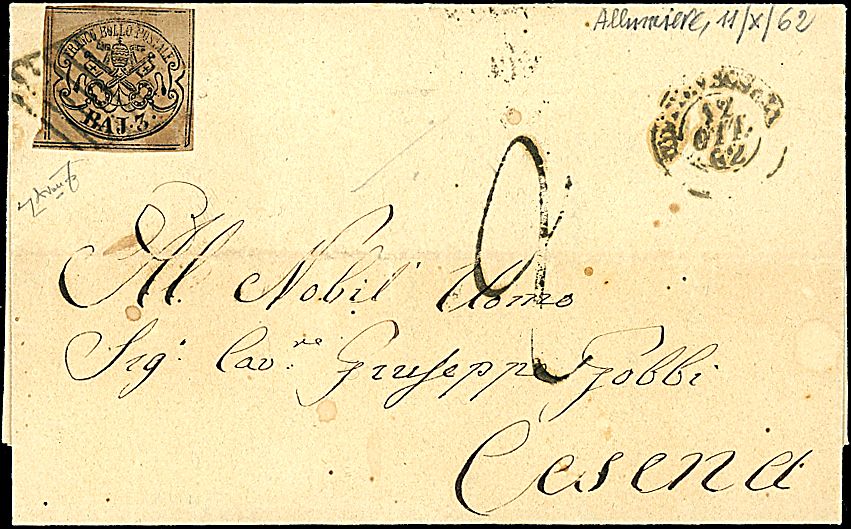 Allumiere, 11/X/62
FRANCO BOLLO POSTALE
BAJ. 3.
12
OTT.
62
2
Al Nobil Uomo
Sig. Cav.re Giuseppe Gobbi
Cesena